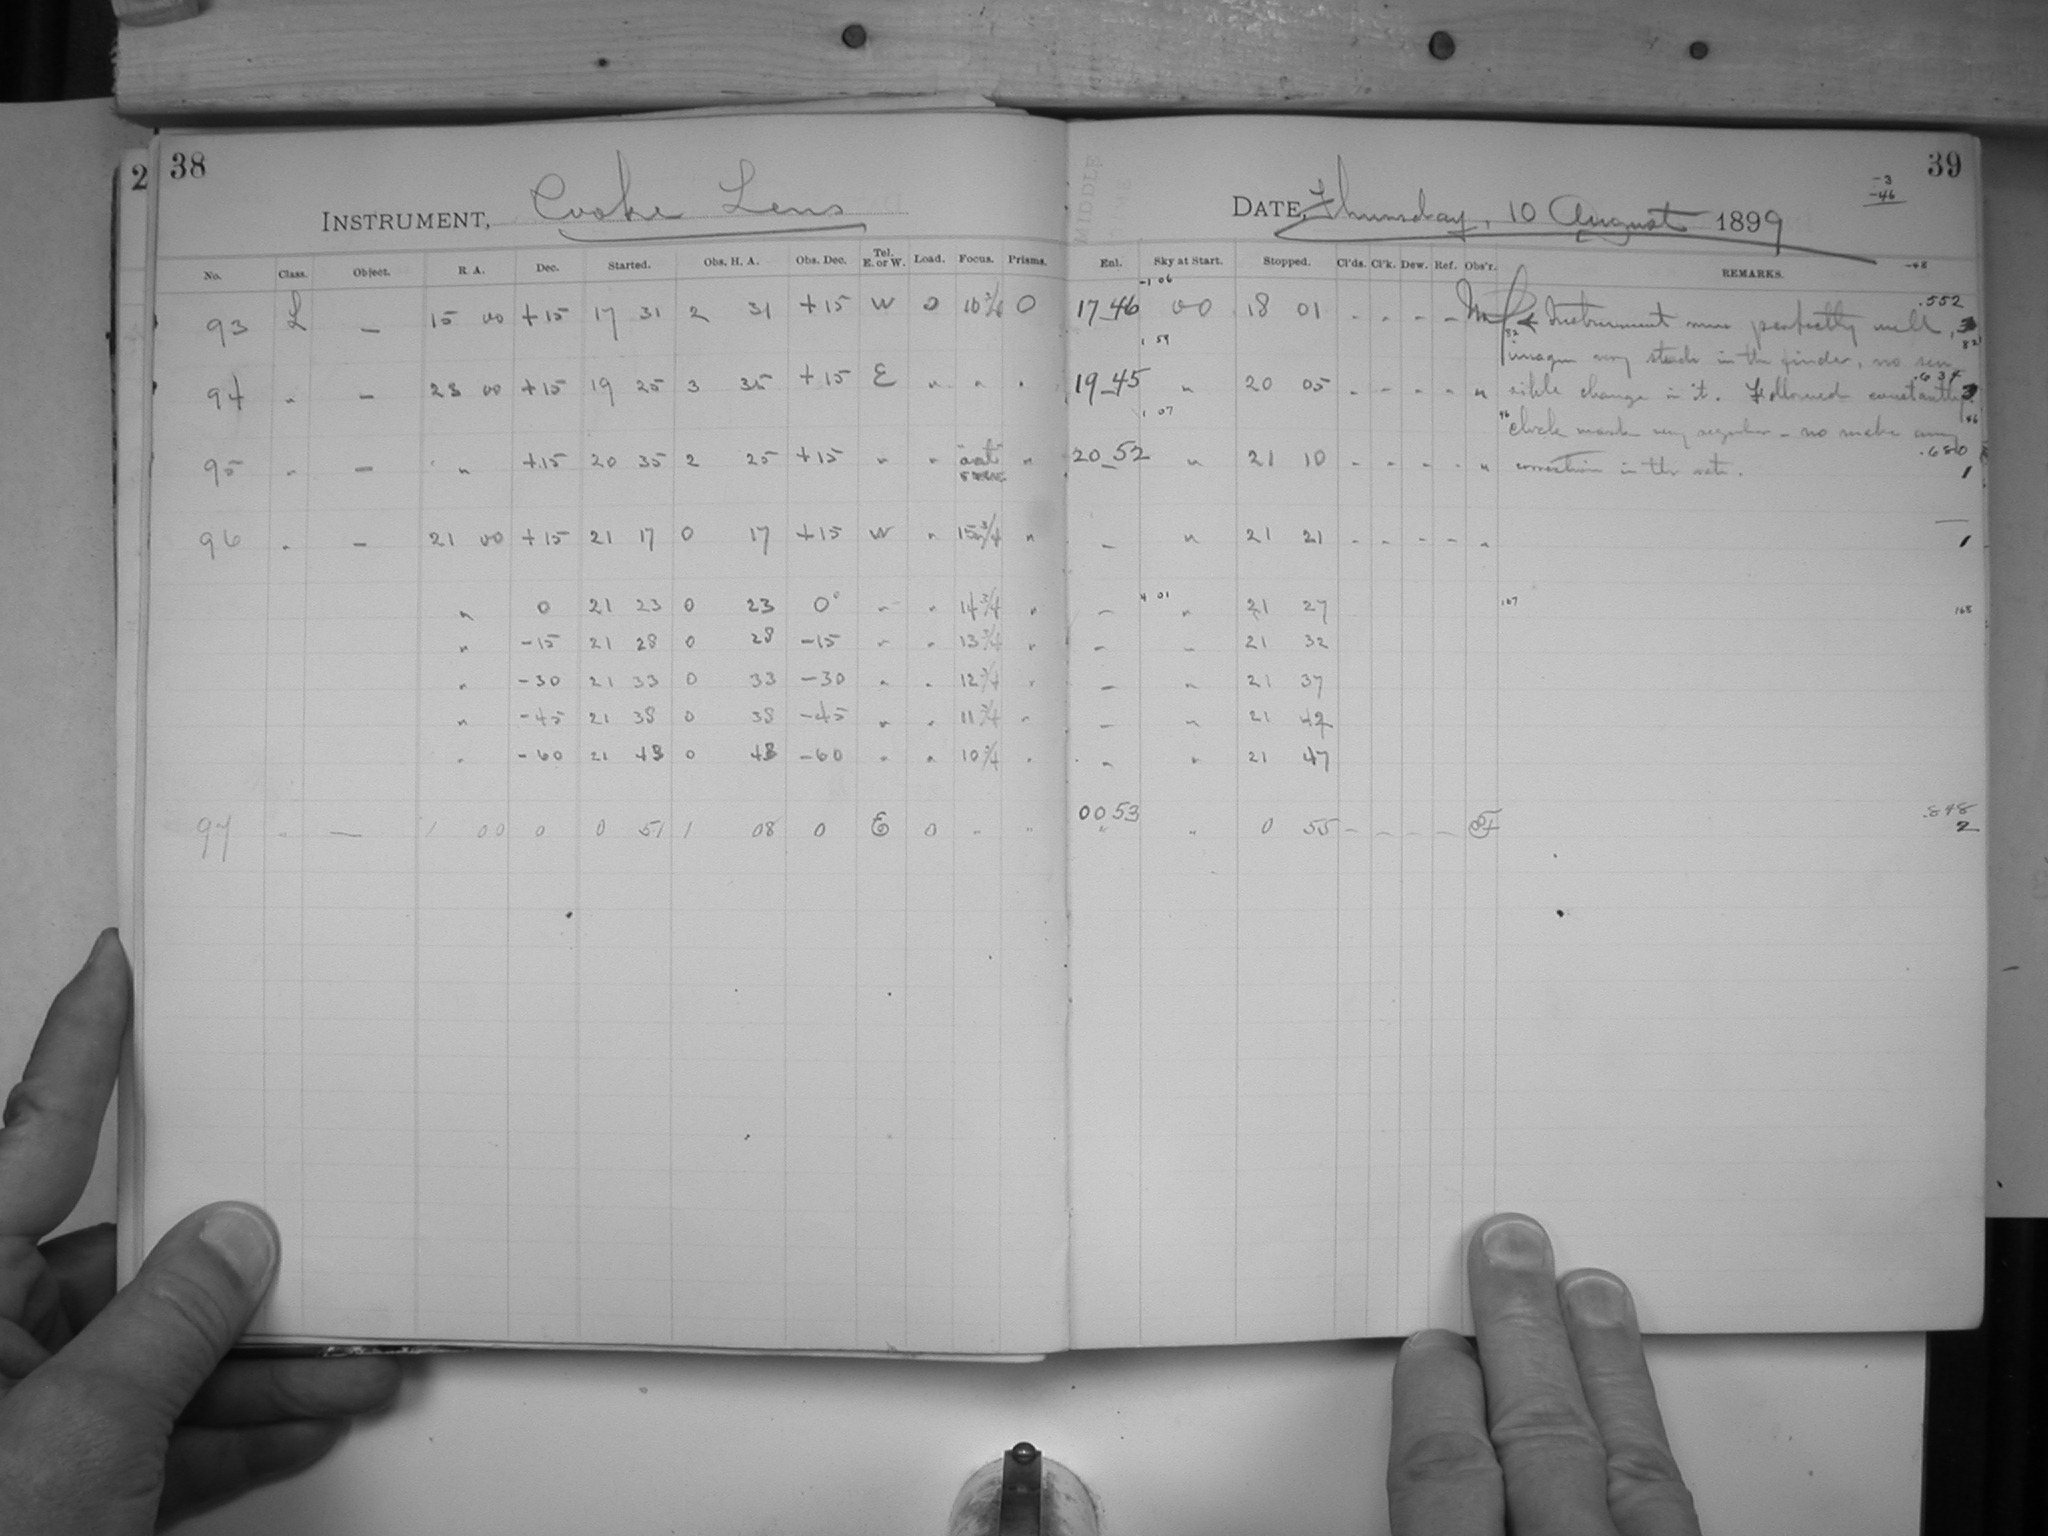 2 38
INSTRUMENT, Cooke Lens
No. Class. Object. R. A. Dec. Started. Obs. H. A. Obs. Dec. Tel. E. or W. Load. Focus. Prisms.
93 L — 15 00 +15 17 31 2 31 +15 W 0 10 3/4 0
94 " — 23 00 +15 19 25 3 35 +15 E " " "
95 " — " +15 20 35 2 25 +15 " " "
96 " — 21 00 +15 21 17 0 17 +15 W " 15 3/4 "
" 0 21 23 0 23 0° " " 14 3/4 "
" -15 21 28 0 28 -15 " " 13 3/4 "
" -30 21 33 0 33 -30 " " 12 3/4 "
" -45 21 38 0 38 -45 " " 11 3/4 "
" -60 21 43 0 43 -60 " " 10 3/4 "
97 " — 1 00 0 0 51 1 08 0 E 0 " "
MIDDLE
39
-3
-46
DATE, Thursday, 10 August 1899
Enl. Sky at Start. Stopped. Cl'ds. Cl'k. Dew. Ref. Obs'r. REMARKS.
-1 06
17 46 00 18 01 - - - - Instrument runs perfectly well, .552
1 59
images very steady in the finder, no sen-
19 45 " 20 05 - - - - " sible change in it. Followed constantly. .634
1 07
clock marks very regular - no make any
20 52 " 21 10 - - - - " correction in the rate. .680
1
— " 21 21 - - - - " 1
4 01
— " 21 27 167 168
— " 21 32
— " 21 37
— " 21 42
" " 21 47
00 53 " 0 55 - - - - .848
2